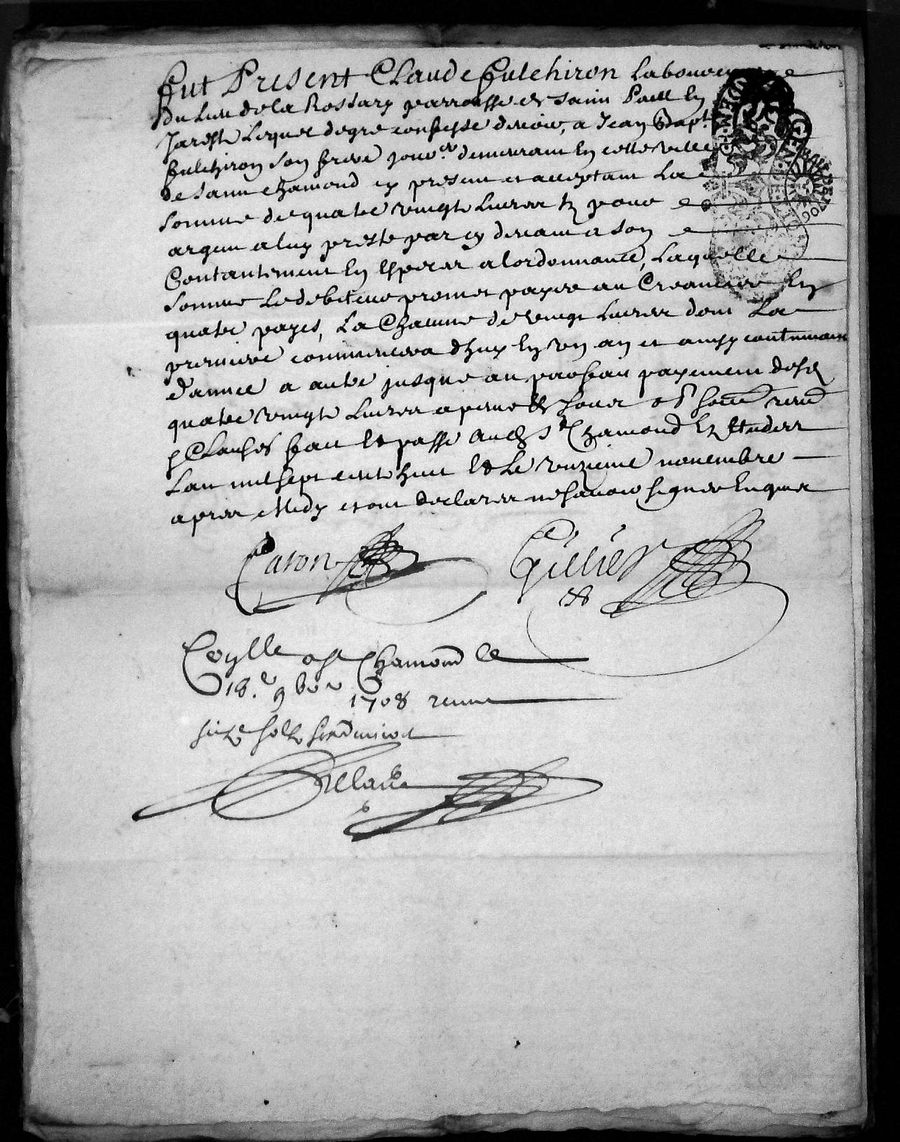 Fut Present Claude Fulchiron Laboureur
Du Lieu de la Rossary parroisse de Saint Paul en
Jarest Lequel de gre confesse devoir, a Jean Bapt
Fulchiron son frere jour.er demeurant en cette ville
de Saint chamond cy present et acceptant La
somme de quatre vingt Livres tz pour
argent a luy preste par cy devant a son
Contantement en Especes a lordonnance, Laquelle
somme Le debiteur promet payer au Creancier En
quatre payes, La Chacune de vingt Livres dont La
premiere commencera dhuy en un an et ainsy continuant
d'annee a autre jusque au parfait payement desd
quatre vingt Livres a peine
Clauses fait et passe aud St Chamond En Etude
Lan mil sept cent huit & Le unzieme novembre
apres Midy et ont declarer ne savoir signer Enquis
Caron
Gillier
Colle a St Chamond le
18.e 9bre 1708